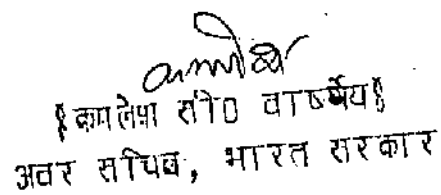 ॥ कमलेश सी0 वार्ष्णेय ॥
अवर सचिव, भारत सरकार